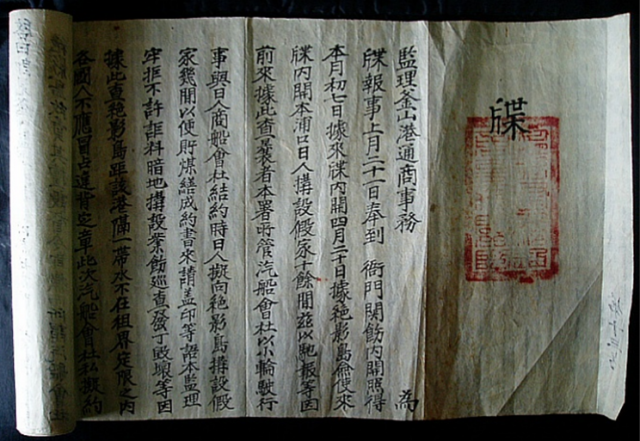 牒
監理釜山港通商事務 為
牒報事上月二十一日奉到 衙門開飭內開照得
本月初七日據來牒內開四月二十日據絶影島僉使來
牒內開本浦口日人搆設假家十餘間茲以馳報等因
前來據此查曩者本署所管汽船會社以小輪駛行
事與日人商船會社結約時日人擬向絶影島搆設假
家幾間以便貯煤繕成約書來請盖印等語本監理
牢拒不許詎料暗地搆設業飭巡查發丁毀壞等因
據此查絶影島距該港隔一帶水不在租界定限之內
各國人不應冒占違背定章此次汽船會社私擬約